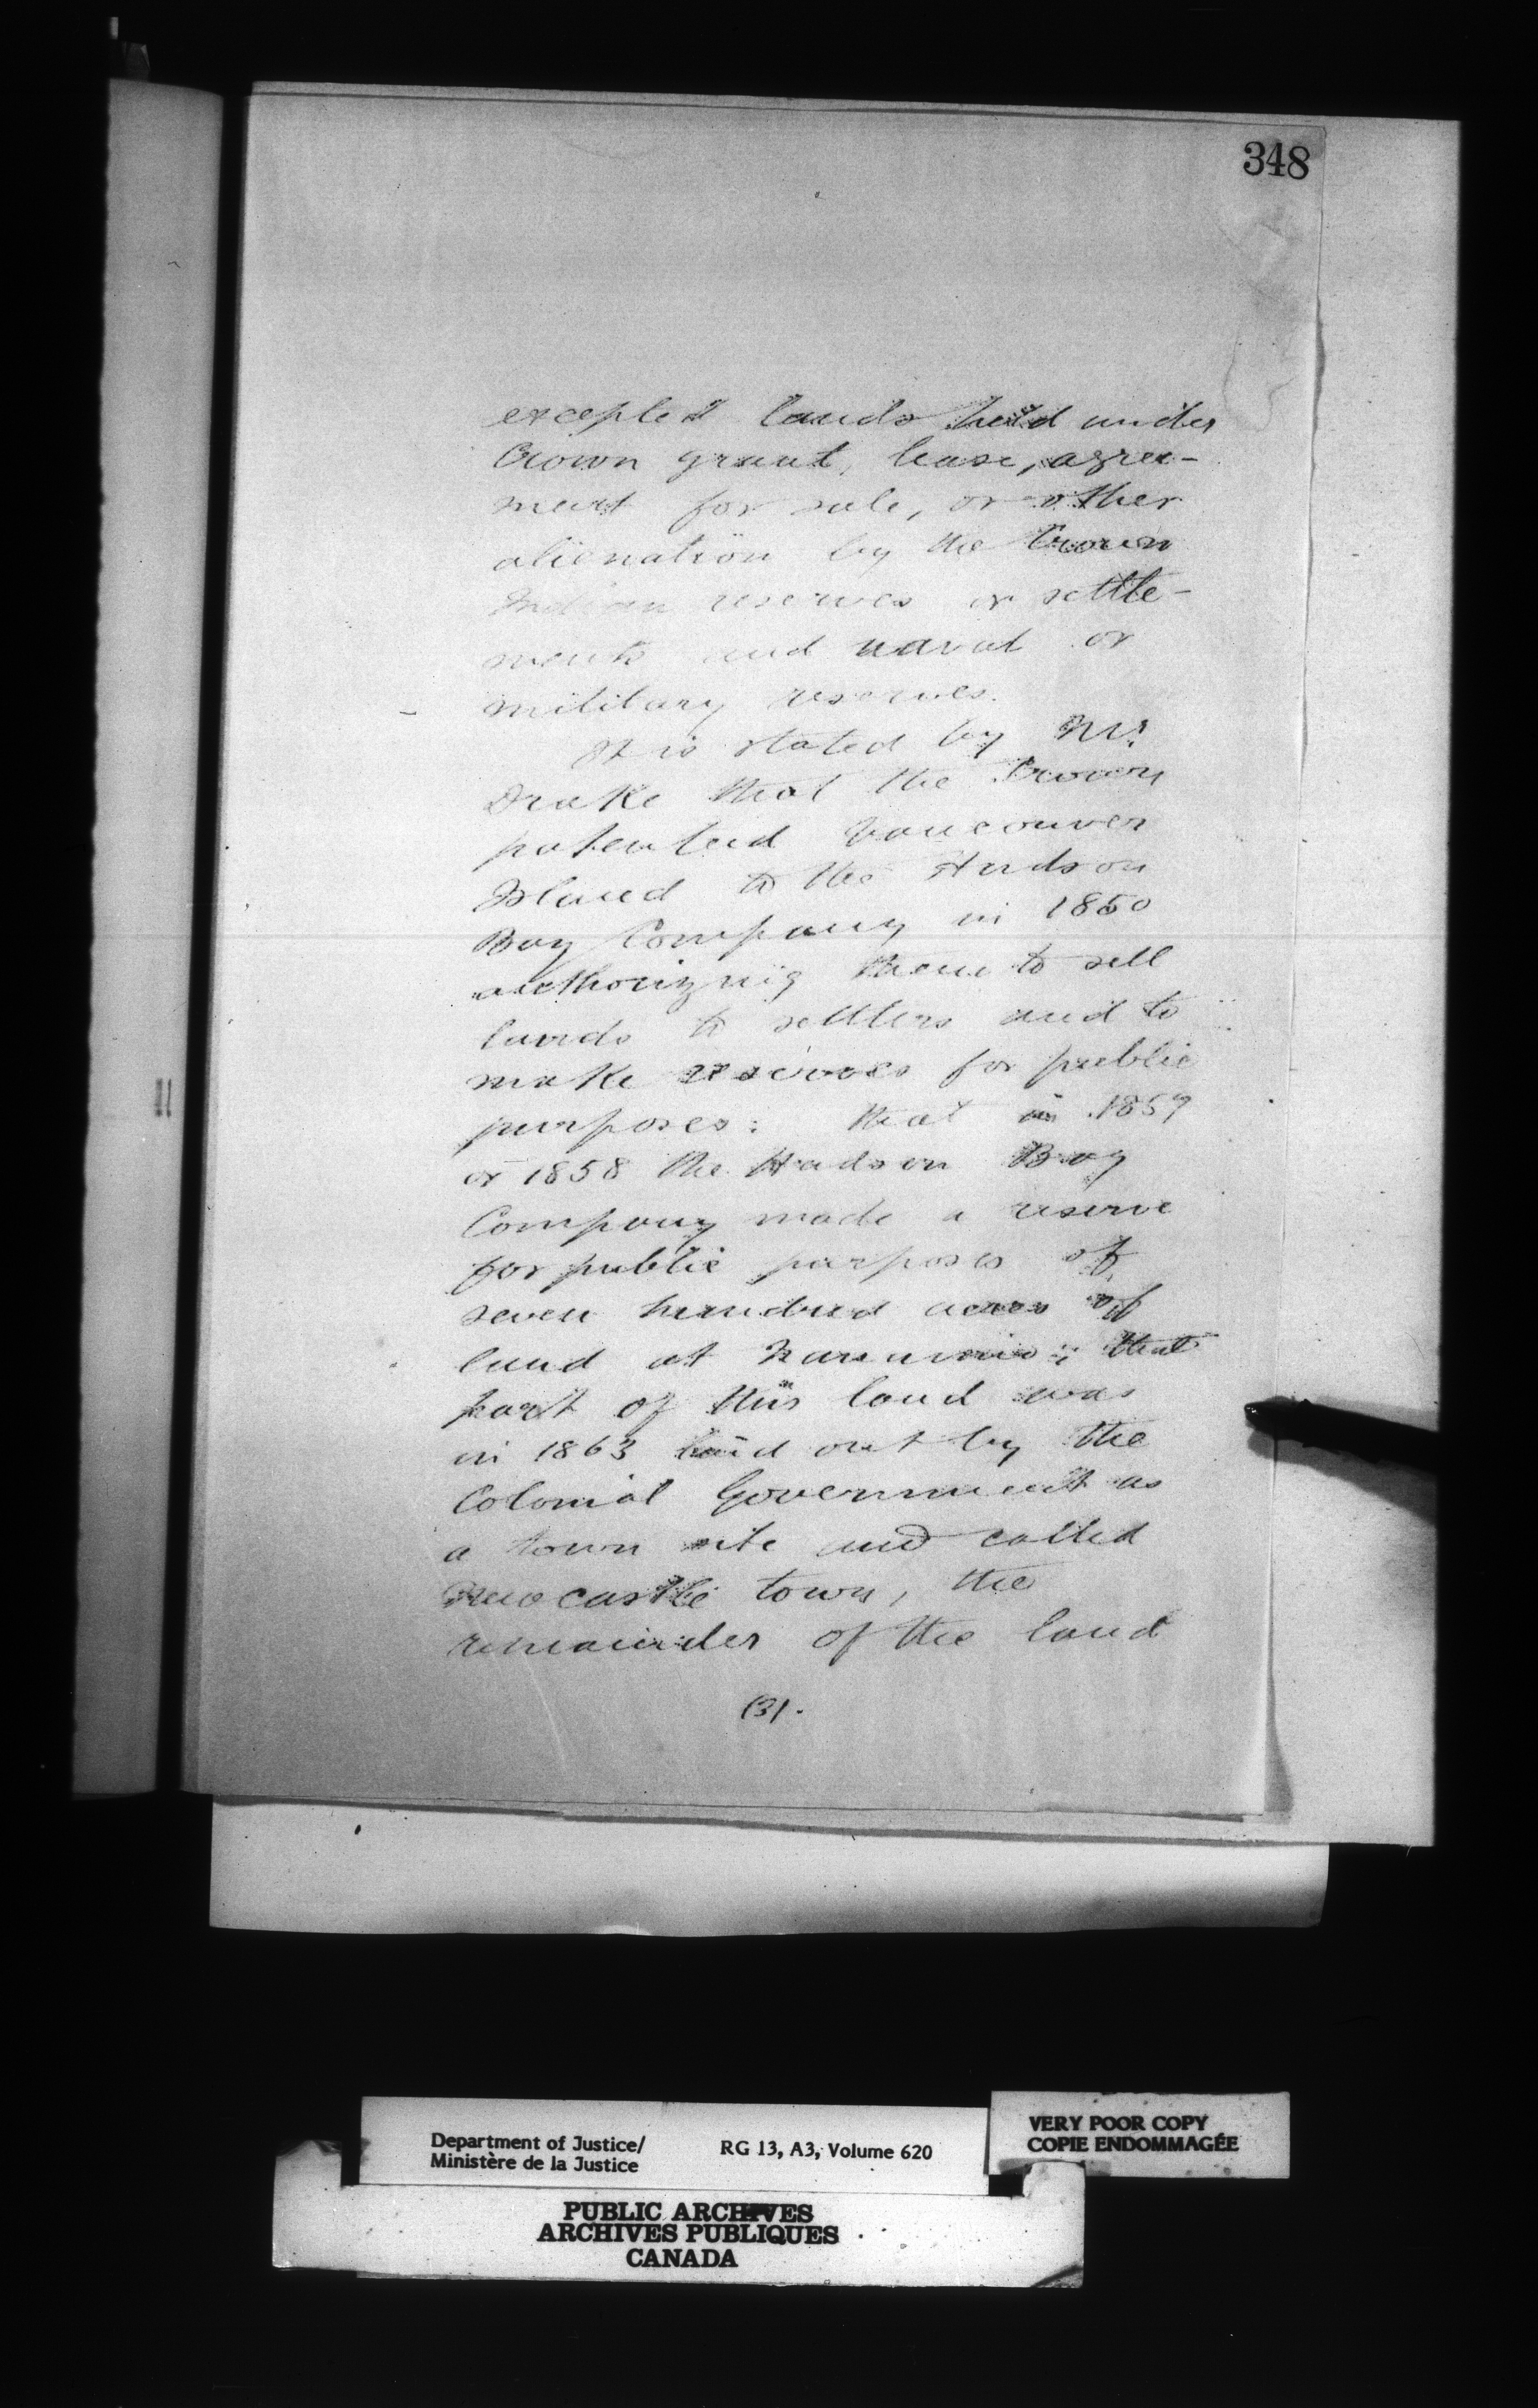 348
excepted lands held under
Crown grant, lease, agree-
ment for sale, or other
alienation by the Crown
Indian reserves or settle-
ments and naval or
military reserves.
It is stated by Mr.
Drake that the Crown
patented Vancouver
Island to the Hudson
Bay Company in 1850
authorizing them to sell
lands to settlers and to
make reserves for public
purposes: that in 1857
or 1858 the Hudson Bay
Company made a reserve
for public purposes of
seven hundred acres of
land at Nanaimo; that
part of this land was
in 1863 laid out by the
Colonial Government as
a town site and called
Newcastle town, the
remainder of the land
(3).
Department of Justice/
Ministère de la Justice
RG 13, A3, Volume 620
VERY POOR COPY
COPIE ENDOMMAGÉE
PUBLIC ARCHIVES
ARCHIVES PUBLIQUES
CANADA